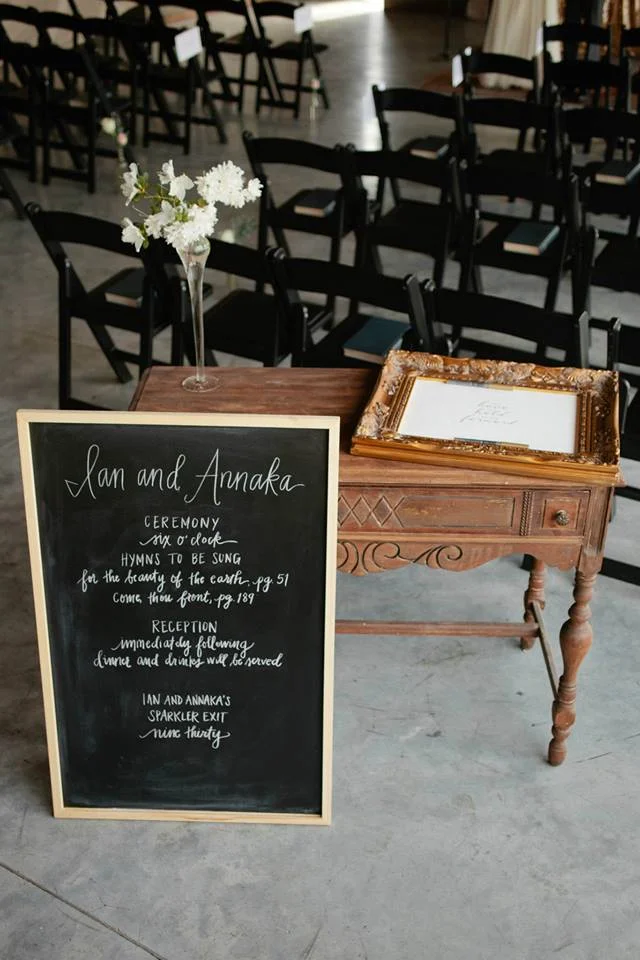 Ian and Annaka
CEREMONY
six o'clock
HYMNS TO BE SUNG
for the beauty of the earth, pg. 51
Come, thou front, pg. 189
RECEPTION
immediatly following
dinner and drinks will be served
IAN AND ANNAKA'S
SPARKLER EXIT
nine thirty